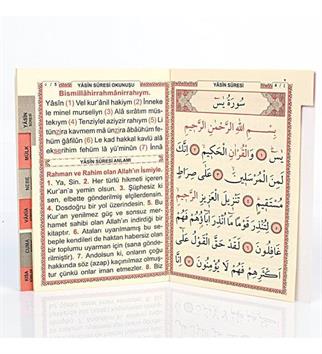 YÂSİN SÛRESİ OKUNUŞU
Bismillâhirrahmânirrahıym.
Yâsîn (1) Vel kur'ânil hakiym (2) İnneke
le minel murseliyn (3) Alâ sırâtım müs-
tekıym (4) Tenziylel aziyzir rahıym (5) Li
tünzira kavmem mâ ünzira âbâühüm fe-
hüm ğâfilûn (6) Le kad hakkal kavlü alâ
ekserihim fehüm lâ yü'minûn (7) İnnâ
YÂSİN SÛRESİ ANLAMI
Rahman ve Rahim olan Allah'ın İsmiyle.
1. Ya, Sin. 2. Her türlü hikmeti içeren
Kur'an'a yemin olsun. 3. Şüphesiz ki
sen, elbette gönderilmiş elçilerdensin.
4. Dosdoğru bir yol üzerindesin. 5. Bu
Kur'an yenilmez güç ve sonsuz mer-
hamet sahibi olan Allah'ın indirdiği bir
kitaptır. 6. Ataları uyarılmamış bu se-
beple kendileri de haktan habersiz olan
bir toplumu uyarman için (sana gönde-
rilmiştir). 7. Andolsun ki, onların çoğu
hakkında söz (azap) kaçınılmaz olmuş-
tur çünkü onlar iman etmezler. 8. Biz
YÂSİN
MÜLK
NEBE
VAKIA
CUMA
YÂSİN SÛRESİ
سُورَةُ يٰسٓ
بِسْمِ اللّٰهِ الرَّحْمٰنِ الرَّحِيمِ
يٰسٓ ﴿١﴾ وَالْقُرْاٰنِ الْحَكِيمِ ﴿٢﴾ اِنَّكَ
لَمِنَ الْمُرْسَلِينَ ﴿٣﴾ عَلٰى صِرَاطٍ
مُسْتَقِيمٍ ﴿٤﴾ تَنْزِيلَ الْعَزِيزِ الرَّحِيمِ
﴿٥﴾ لِتُنْذِرَ قَوْمًا مَٓا اُنْذِرَ اٰبَٓاؤُهُمْ فَهُمْ
غَافِلُونَ ﴿٦﴾ لَقَدْ حَقَّ الْقَوْلُ عَلٰٓى
اَكْثَرِهِمْ فَهُمْ لَا يُؤْمِنُونَ ﴿٧﴾ اِنَّا